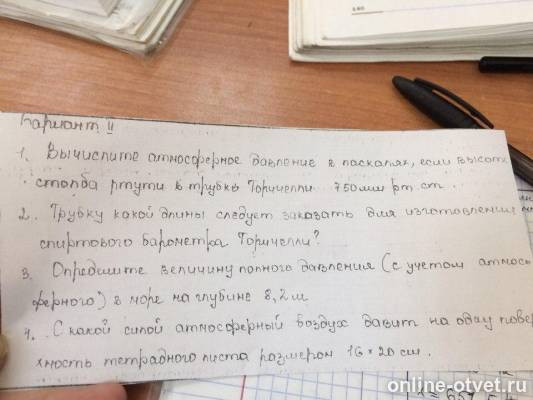 Вариант 4
1. Вычислите атмосферное давление в паскалях, если высот
столба ртути в трубке Торичелли 750 мм рт. ст.
2. Трубку какой длины следует заказать для изготовления
спиртового барометра Торичелли?
3. Определите величину полного давления (с учетом атмос
ферного) в море на глубине 8,2 м
4. С какой силой атмосферный воздух давит на одну повер
хность тетрадного листа размером 16 × 20 см.
online-otvet.ru